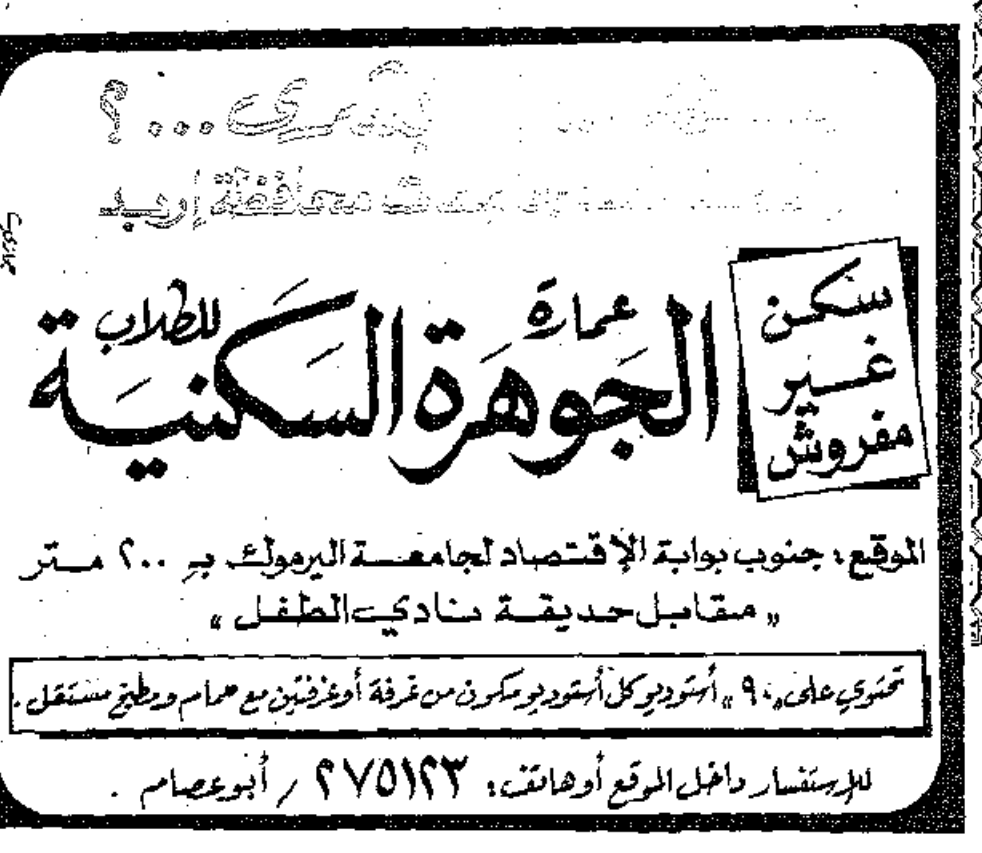 بشرى...؟
محافظة إربد
سكن
غير
مفروش
عمارة
الجَوهَرة السَكنيَة
للطلاب
الموقع: جنوب بوابة الإقتصاد لجامعة اليرموك بـِ ٢٠٠ متر
"مقابل حديقة نادي الطفل"
تحتوي على "٩٠" أستوديو كل أستوديو مكون من غرفة أو غرفتين مع حمام ومطبخ مستقل.
للإستفسار داخل الموقع أو هاتف: ٢٧٥١٢٣ / أبو عصام.